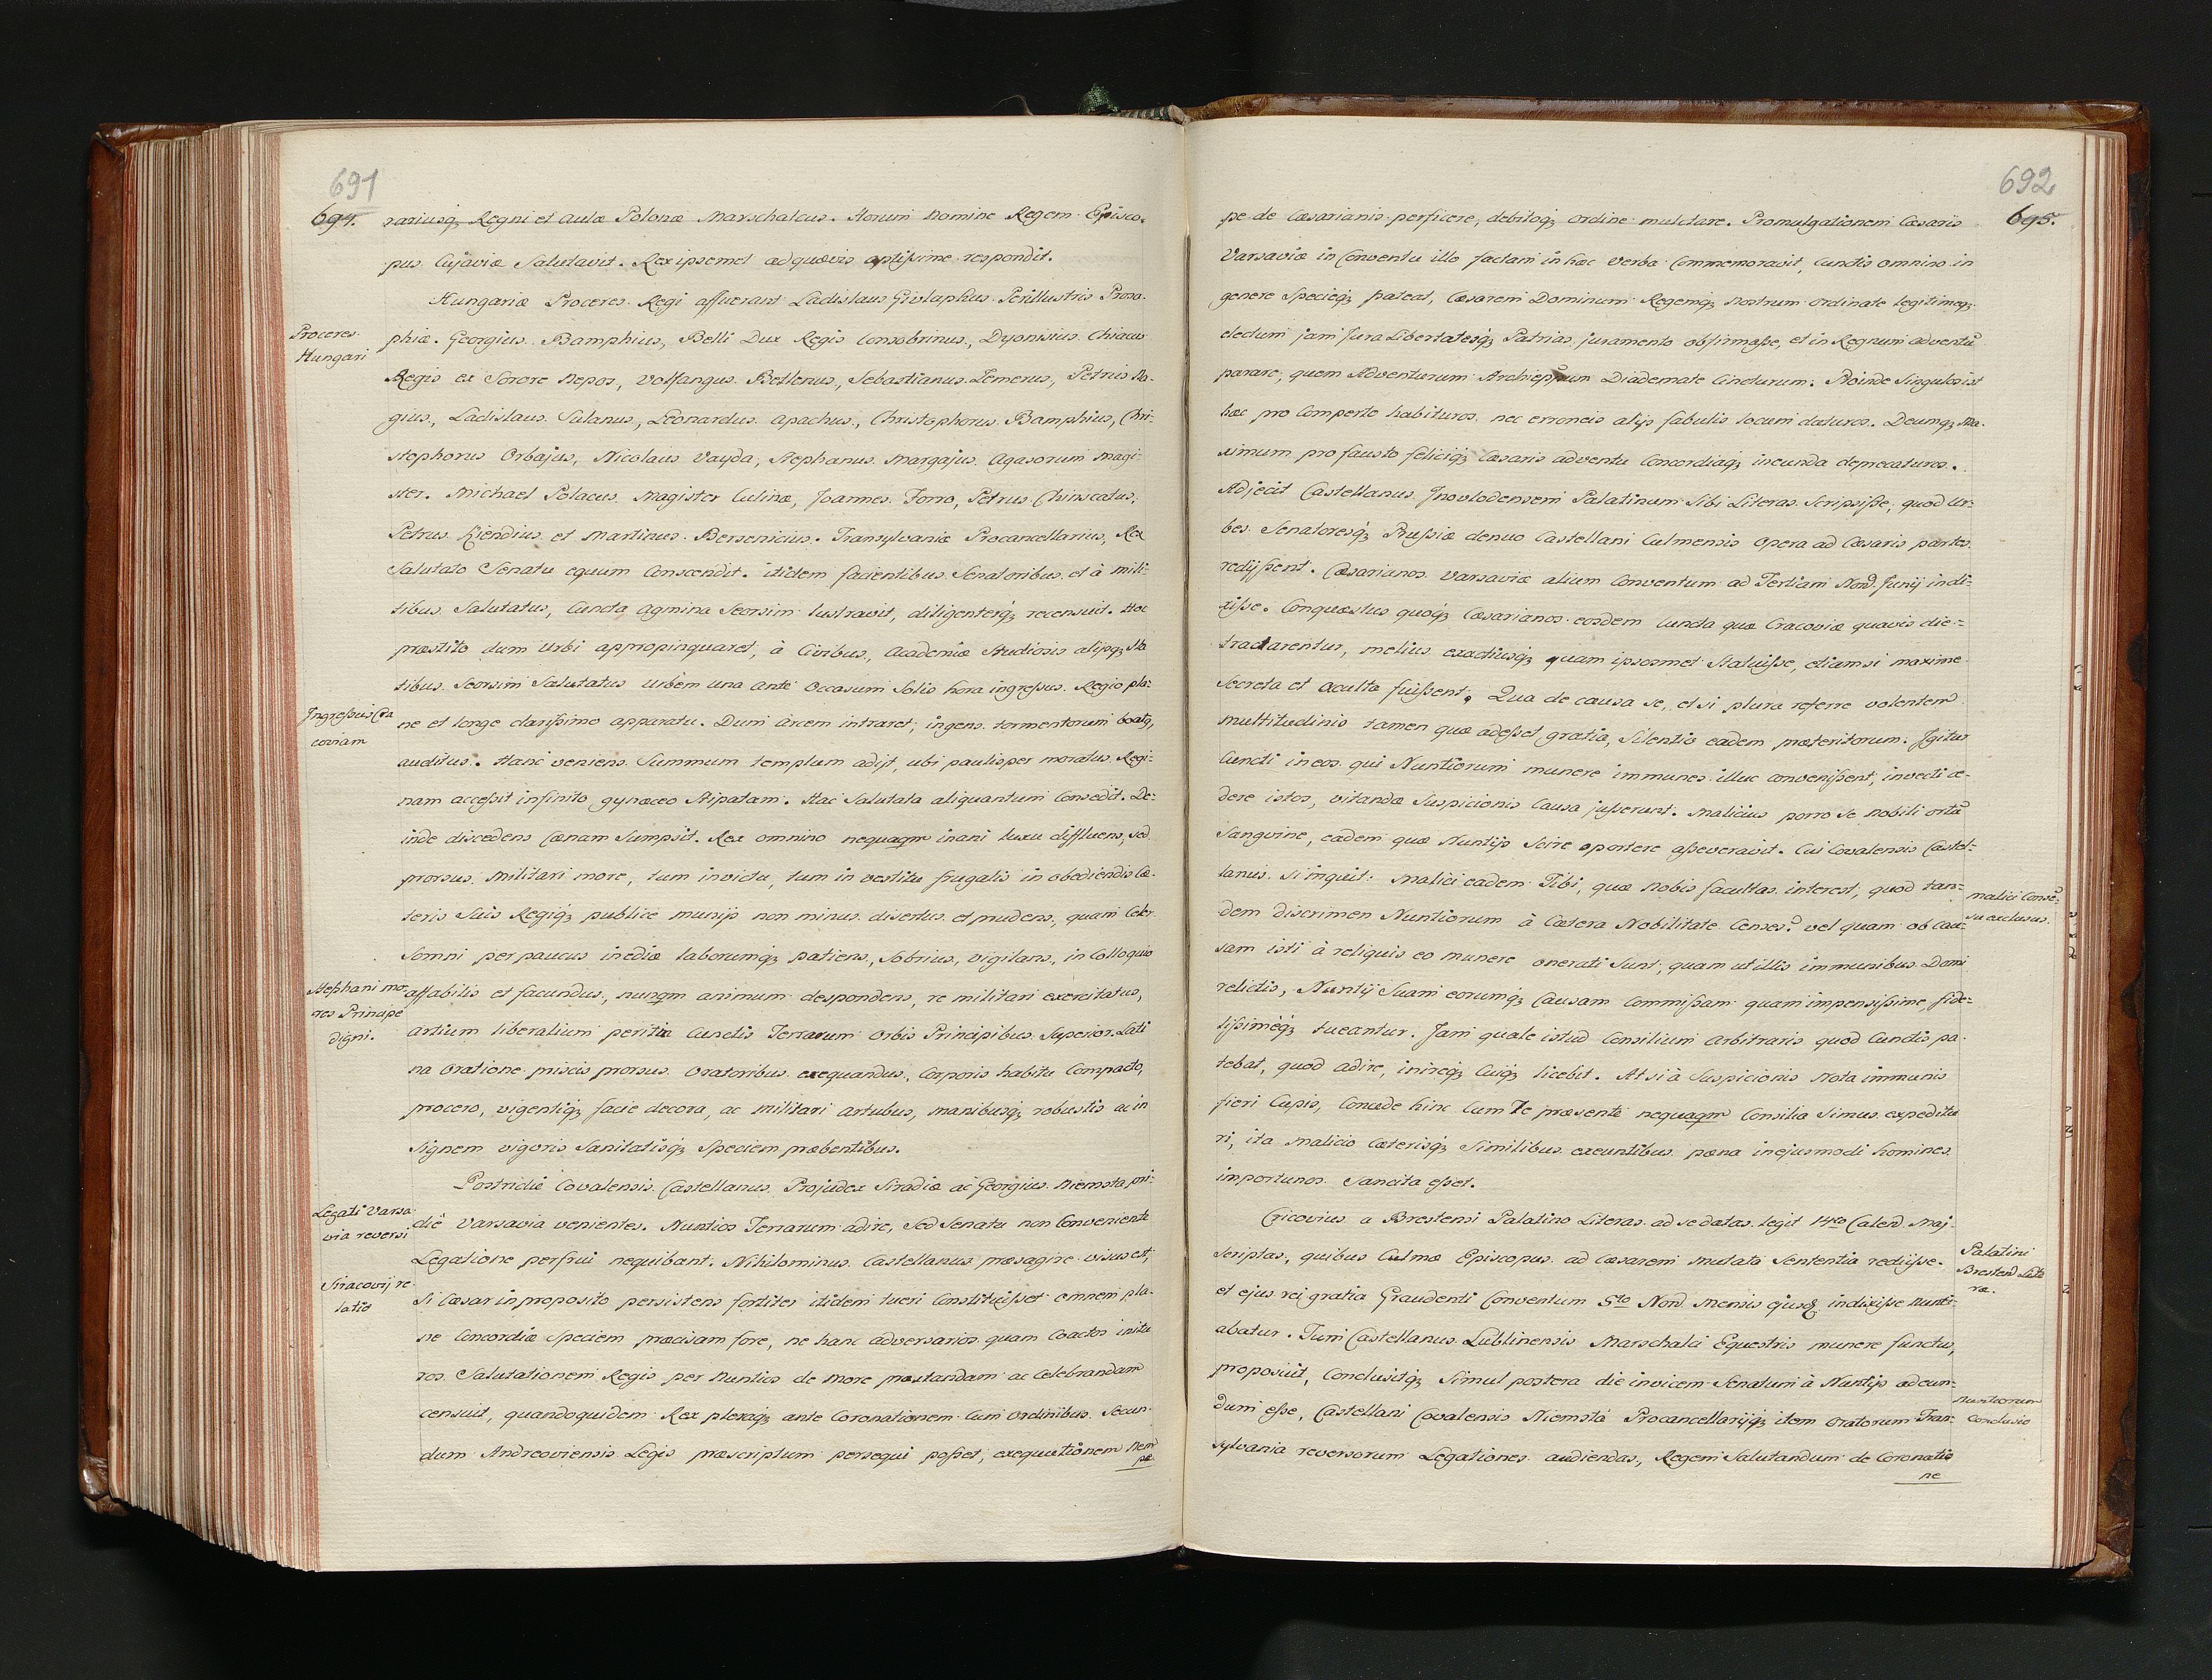 691
694. rariusq; Regni et aulæ Polonæ Marschalcus. Horum nomine Regem Episco-
pus Cujaviæ Salutavit. Rex ipsemet ad quævis aptissime respondit.
Hungariæ Proceres Regi affuerant Ladislaus Givlaphus Perillustris Prosa-
Proceres
Hungari
phiæ. Georgius Bamphius, Belli Dux Regis Consobrinus, Dyonisius Chiaus
Regis ex Sorore Nepos, Volfangus Betlenus, Sebastianus Temerus, Petrus Na-
gius, Ladislaus Sulanus, Leonardus Apachus, Christophorus Bamphius, Chri-
stophorus Orbajus, Nicolaus Vayda, Stephanus Margajus Agasorum Magi-
ster. Michael Polacus Magister Culinæ, Joannes Forro, Petrus Chiniscatus,
Petrus Kiendius et Martinus Bersenicius. Transylvaniæ Procancellarius, Rex
Salutato Senatu equum Conscendit. itidem facientibus Senatoribus et à mili-
tibus Salutatus, Cuncta agmina Seorsim lustravit, diligenterq; recensuit. Hoc
præstito dum Urbi appropinquaret, à Civibus, Academiæ Studiosis alijsq; Sta
tibus Seorsim Salutatus Urbem una ante Occasum Solis hora ingressus. Regio pla-
Ingressus Cra
coviam
ne et longe clarissimo apparatu. Dum Arcem intraret, ingens tormentorum boatq,
auditus. Hanc veniens Summum templum adijt, ubi paulisper moratus Regi-
nam accessit infinito gynæceo Stipatam. Hac Salutata aliquantum Consedit. De-
inde discedens Cænam Sumpsit. Rex omnino nequaqm inani luxu diffluens, sed
prorsus Militari more, tum in victu, tum in vestitu frugalis in obediendis Cæ-
teris Suis Regiq; publice munijs non minus disertus et prudens, quam Celer
Somni perpaucus inediæ laborumq; patiens, Sobrius, vigilans, in Colloquio
Stephani mo-
res Principe
digni.
affabilis et facundus, nunqm animum despondens, re militari exercitatus,
artium liberalium peritia Cunctis Terrarum Orbis Principibus Superior. Lati
na Oratione priscis prorsus Oratoribus exequandus, Corporis habitu Compacto,
procero, vigentiq; facie decora, ac Militari artubus, manibusq; robustis ac in
signem vigoris Sanitatisq; Speciem præbentibus.
Postridie Covalensis Castellanus Projudex Siradiæ ac Georgius Niemsta pri-
Legati Varsa-
via reversi
die Varsavia venientes. Nuntios Terrarum adire, Sed Senatu non Conveniente
Legatione perfrui nequibant. Nihilominus Castellanus præsagire visus est,
Siracovij re-
latio
Si Cæsar in proposito persistens fortiter itidem tueri Constituisset omnem pla-
ne Concordiæ Speciem præcisam fore, ne hanc adversarios quam Coactos initu
ros Salutationem Regis per Nuntios de More præstandam ac Celebrandam
censuit, quandoquidem Rex pleraq; ante Coronationem Cum Ordinibus Secun-
dum Andreoviensis Legis præscriptum persequi posset, exequutionem Nem
pe
692
pe de Cæsarianis perficere, debitoq; Ordine mulctare. Promulgationem Cæsaris 695.
Varsaviæ in Conventu illo factam in hæc verba Commemoravit, Cunctis omnino in
genere Specieq; pateat, Cæsarem Dominum Regemq; Nostrum Ordinate legitimeq;
electum jam Jura Libertatesq; Patrias juramento obfirmasse, et in Regnum adventũ
parare, quem Adventurum Archieppum Diademate Cincturum. Proinde Singulos ist
hæc pro Comperto habituros nec erroneis alijs fabulis locum daturos. Deumq; Ma-
ximum pro fausto feliciq; Cæsaris adventu Concordiaq; ineunda deprecaturos.
Adjecit Castellanus Jnovlodensem Palatinum Sibi Literas Scripsisse, quod Ur-
bes Senatoresq; Prussiæ denuo Castellani Culmensis Opera ad Cæsaris partes
redijssent. Cæsarianos Varsaviæ alium Conventum ad Tertiam Nond. Junij indi-
xisse. Conquæstus quoq; Cæsarianos eosdem Cuncta quæ Cracoviæ quavis die
tractarentur, melius exactiusq; quam ipsosmet Statuisse, etiamsi maxime
Secreta et oculta fuissent. Qua de causa se, etsi plura referre volentem
multitudinis tamen quæ adesset gratia, Silentio eadem præteritorum. Jgitur
Cuncti in eos qui Nuntiorum munere immunes illuc convenissent, invecti ce-
dere istos, vitandæ Suspicionis Causa jusserunt. Malicius porro se nobili ortũ
Sangvine, eadem quæ Nuntijs Scire oportere asseveravit. Cui Covalensis Castel-
lanus Si inquit Malici eadem Tibi, quæ Nobis facultas interest, quod tan-
Malici Consẽ-
su exclusus.
dem discrimen Nuntiorum à Cætera Nobilitate Censes? vel quam ob cau-
sam isti à reliquis eo munere onerati Sunt, quam ut illis immunibus Domi
relictis, Nuntij Suam eorumq; Causam Commissam quam impensissime, fide-
lissimèq; tueantur. Jam quale istud Consilium Arbitraris quod Cunctis pa-
tebat, quod adire, inireq; Cuiq; licebit. At si à Suspicionis Nota immunis
fieri Cupis, Concede hinc Cum Te præsente nequaqm Consilia Simus expeditu
ri, ita Malicio Cæterisq; Similibus exeuntibus pæna in ejusmodi homines
importunos Sancita esset.
Cicovius a Brestensi Palatino Literas ad se datas legit 14to Calend. Maj
Palatini
Brestens. Lite
ræ.
Scriptas, quibus Culmæ Episcopus ad Cæsarem mutata Sententia redijsse.
et ejus rei gratia Graudenti Conventum 5to Nond. Mensis ejusd. indixisse Nunti-
abatur. Tum Castellanus Lublinensis Marschalci Equestris munere functus,
proposuit, Conclusitq; Simul postera die invicem Senatum à Nuntijs adeun-
Nuntiorum
Conclusio
dum esse, Castellani Covalensis Niemstá Procancellarijq; item Oratorum Tran-
sylvania reversorum Legationes audiendas, Regem Salutandum de Coronatio
ne